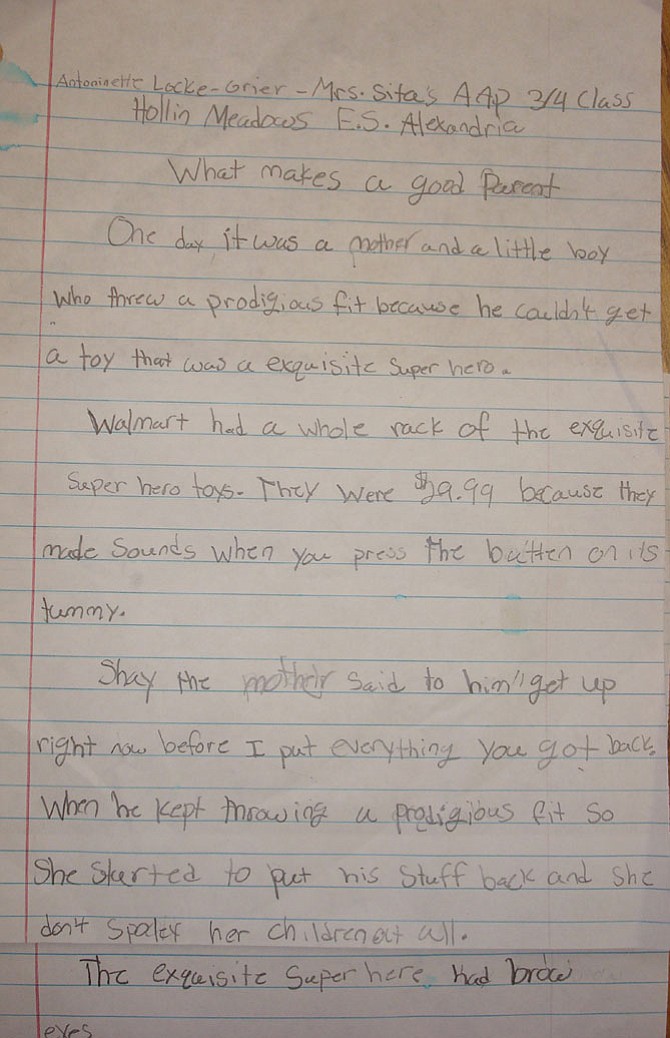 Antoninette Locke-Grier - Mrs. Sita's AAP 3/4 Class
Hollin Meadows E.S. Alexandria
What makes a good Parent
One day it was a mother and a little boy
who threw a prodigious fit because he couldn't get
a toy that was a exquisite super hero.
Walmart had a whole rack of the exquisite
Super hero toys. They were 99 because they
made Sounds when you press the button on its
tummy.
Shay the mother said to him" get up
right now before I put everything you got back.
When he kept throwing a prodigious fit so
She Started to put his Stuff back and she
don't her children at all.
The exquisite Super here had brow
eyes